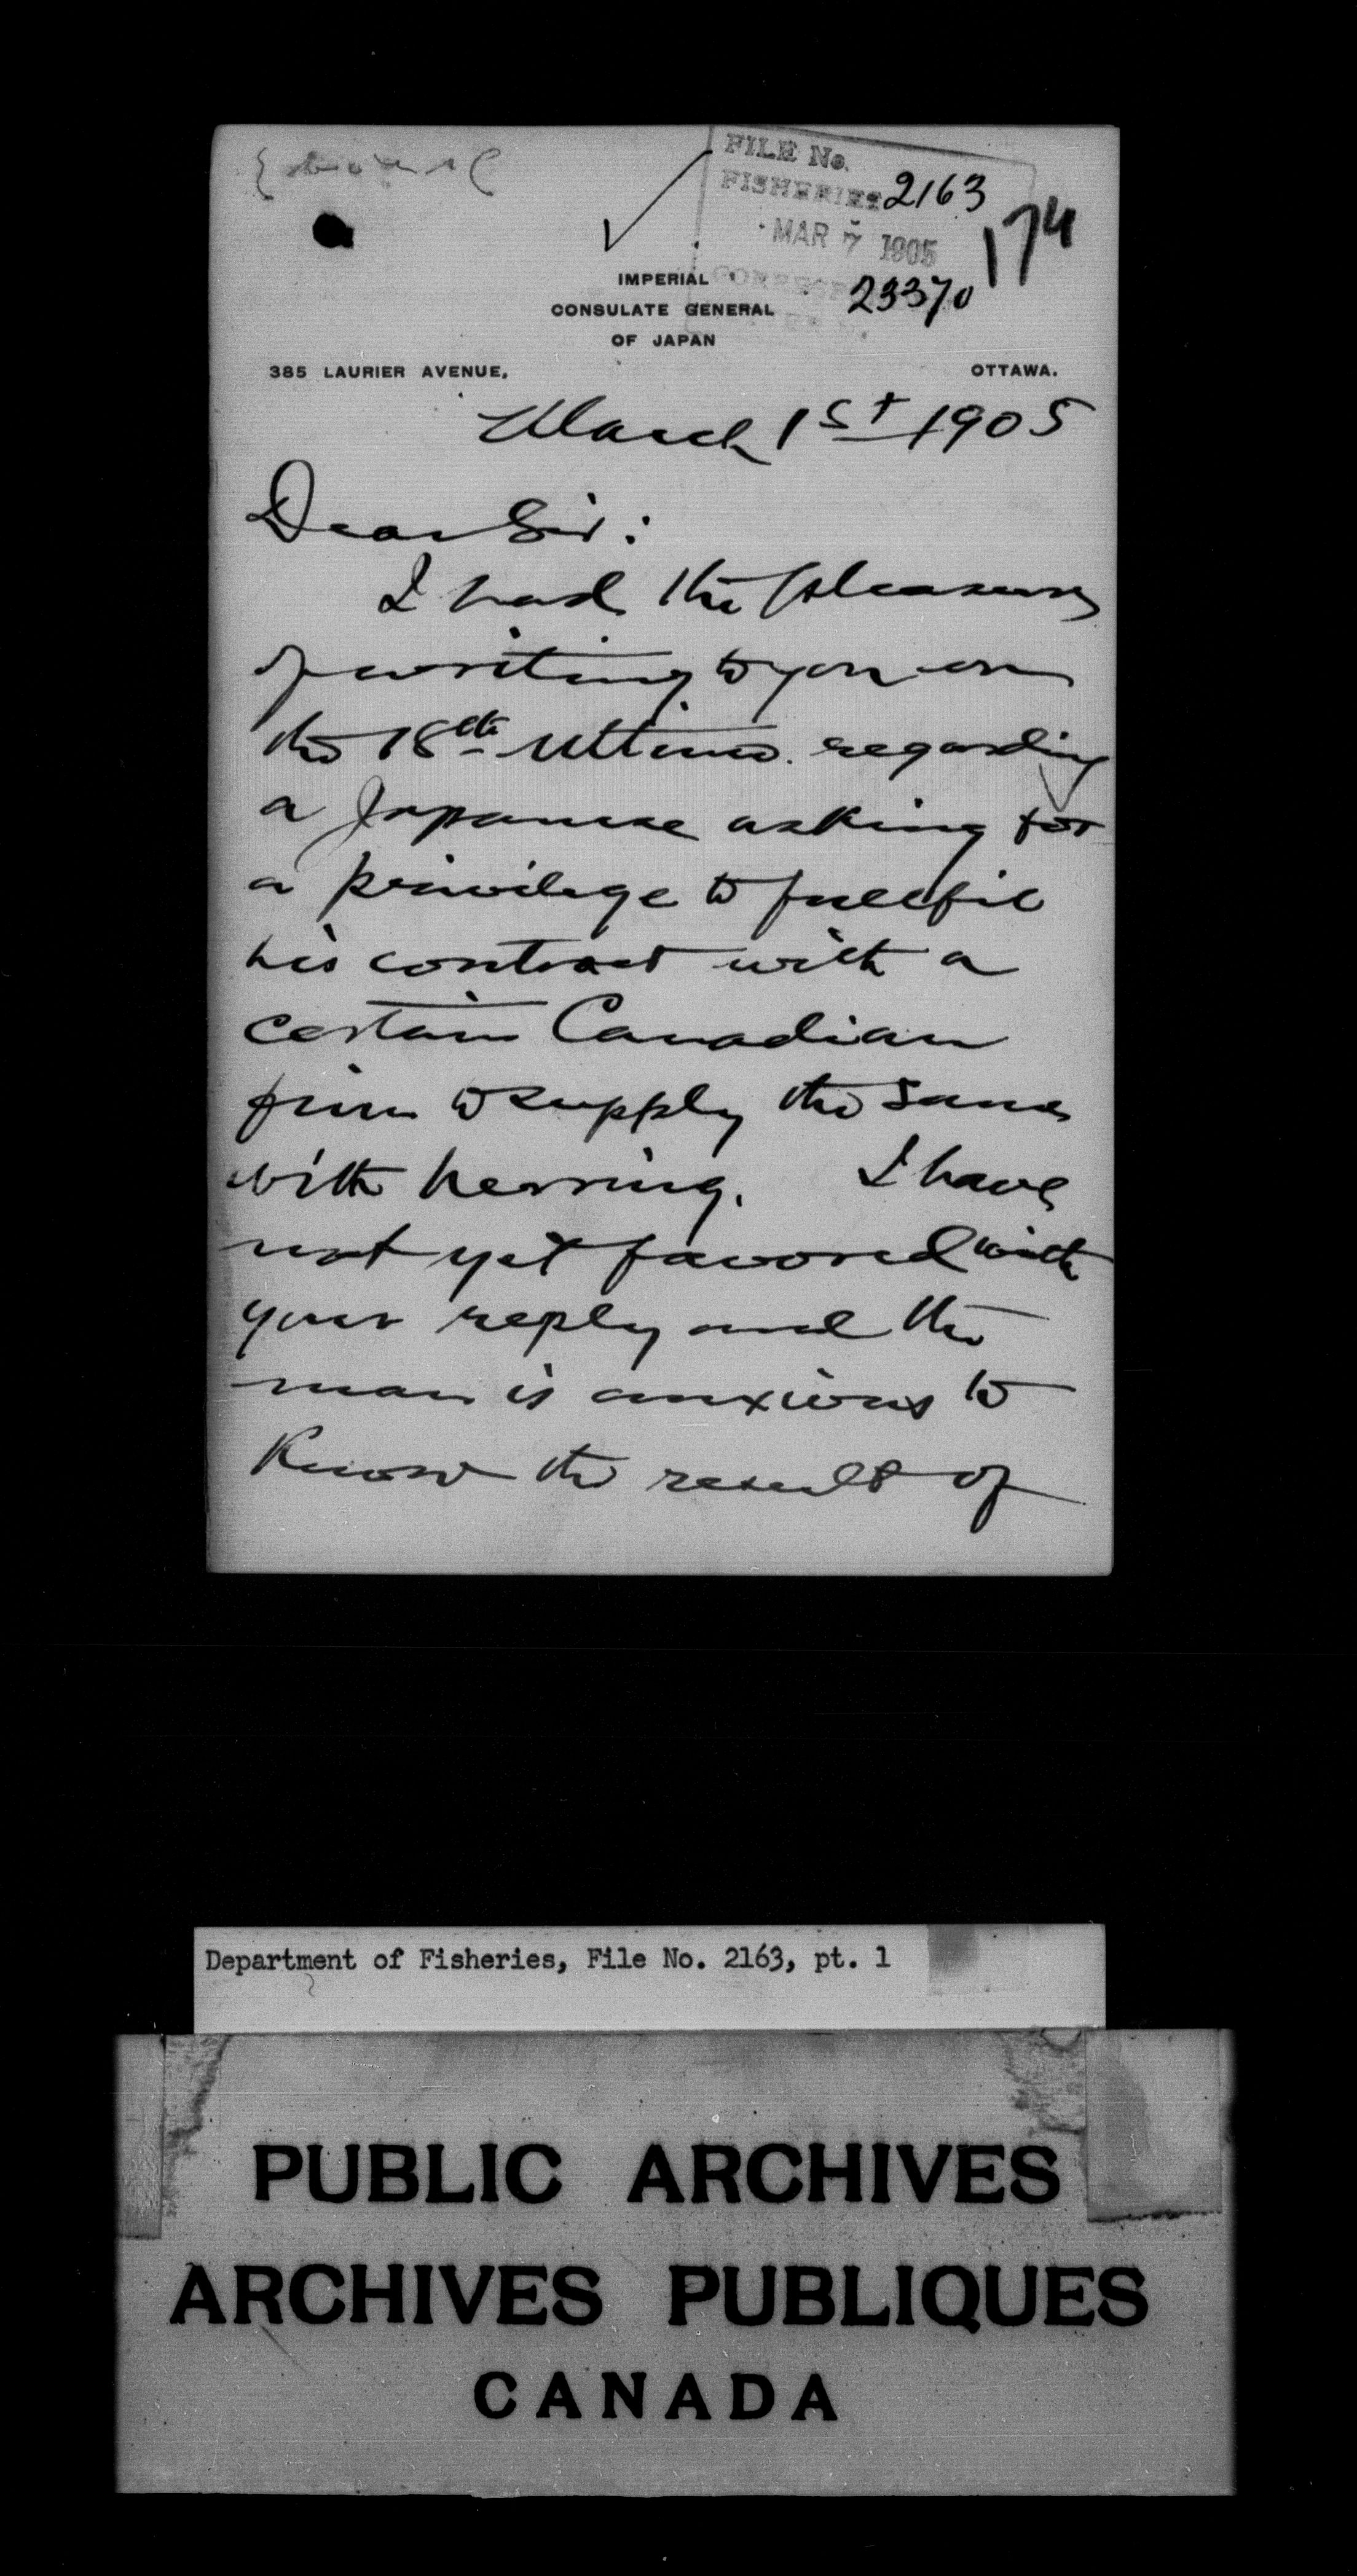 FILE No.
FISHERIES 2163
MAR 7 1905
174
23370
IMPERIAL
CONSULATE GENERAL
OF JAPAN
385 LAURIER AVENUE,
OTTAWA.
March 1st 1905
Dear Sir:
I had the pleasure
of writing to you on
the 18th Ultimo. regarding
a Japanese asking for
a privilege to fullfil
his contract with a
certain Canadian
firm to supply the same
with herring. I have
not yet favored with
your reply and the
man is anxious to
Know the result of
Department of Fisheries, File No. 2163, pt. 1
PUBLIC ARCHIVES
ARCHIVES PUBLIQUES
CANADA